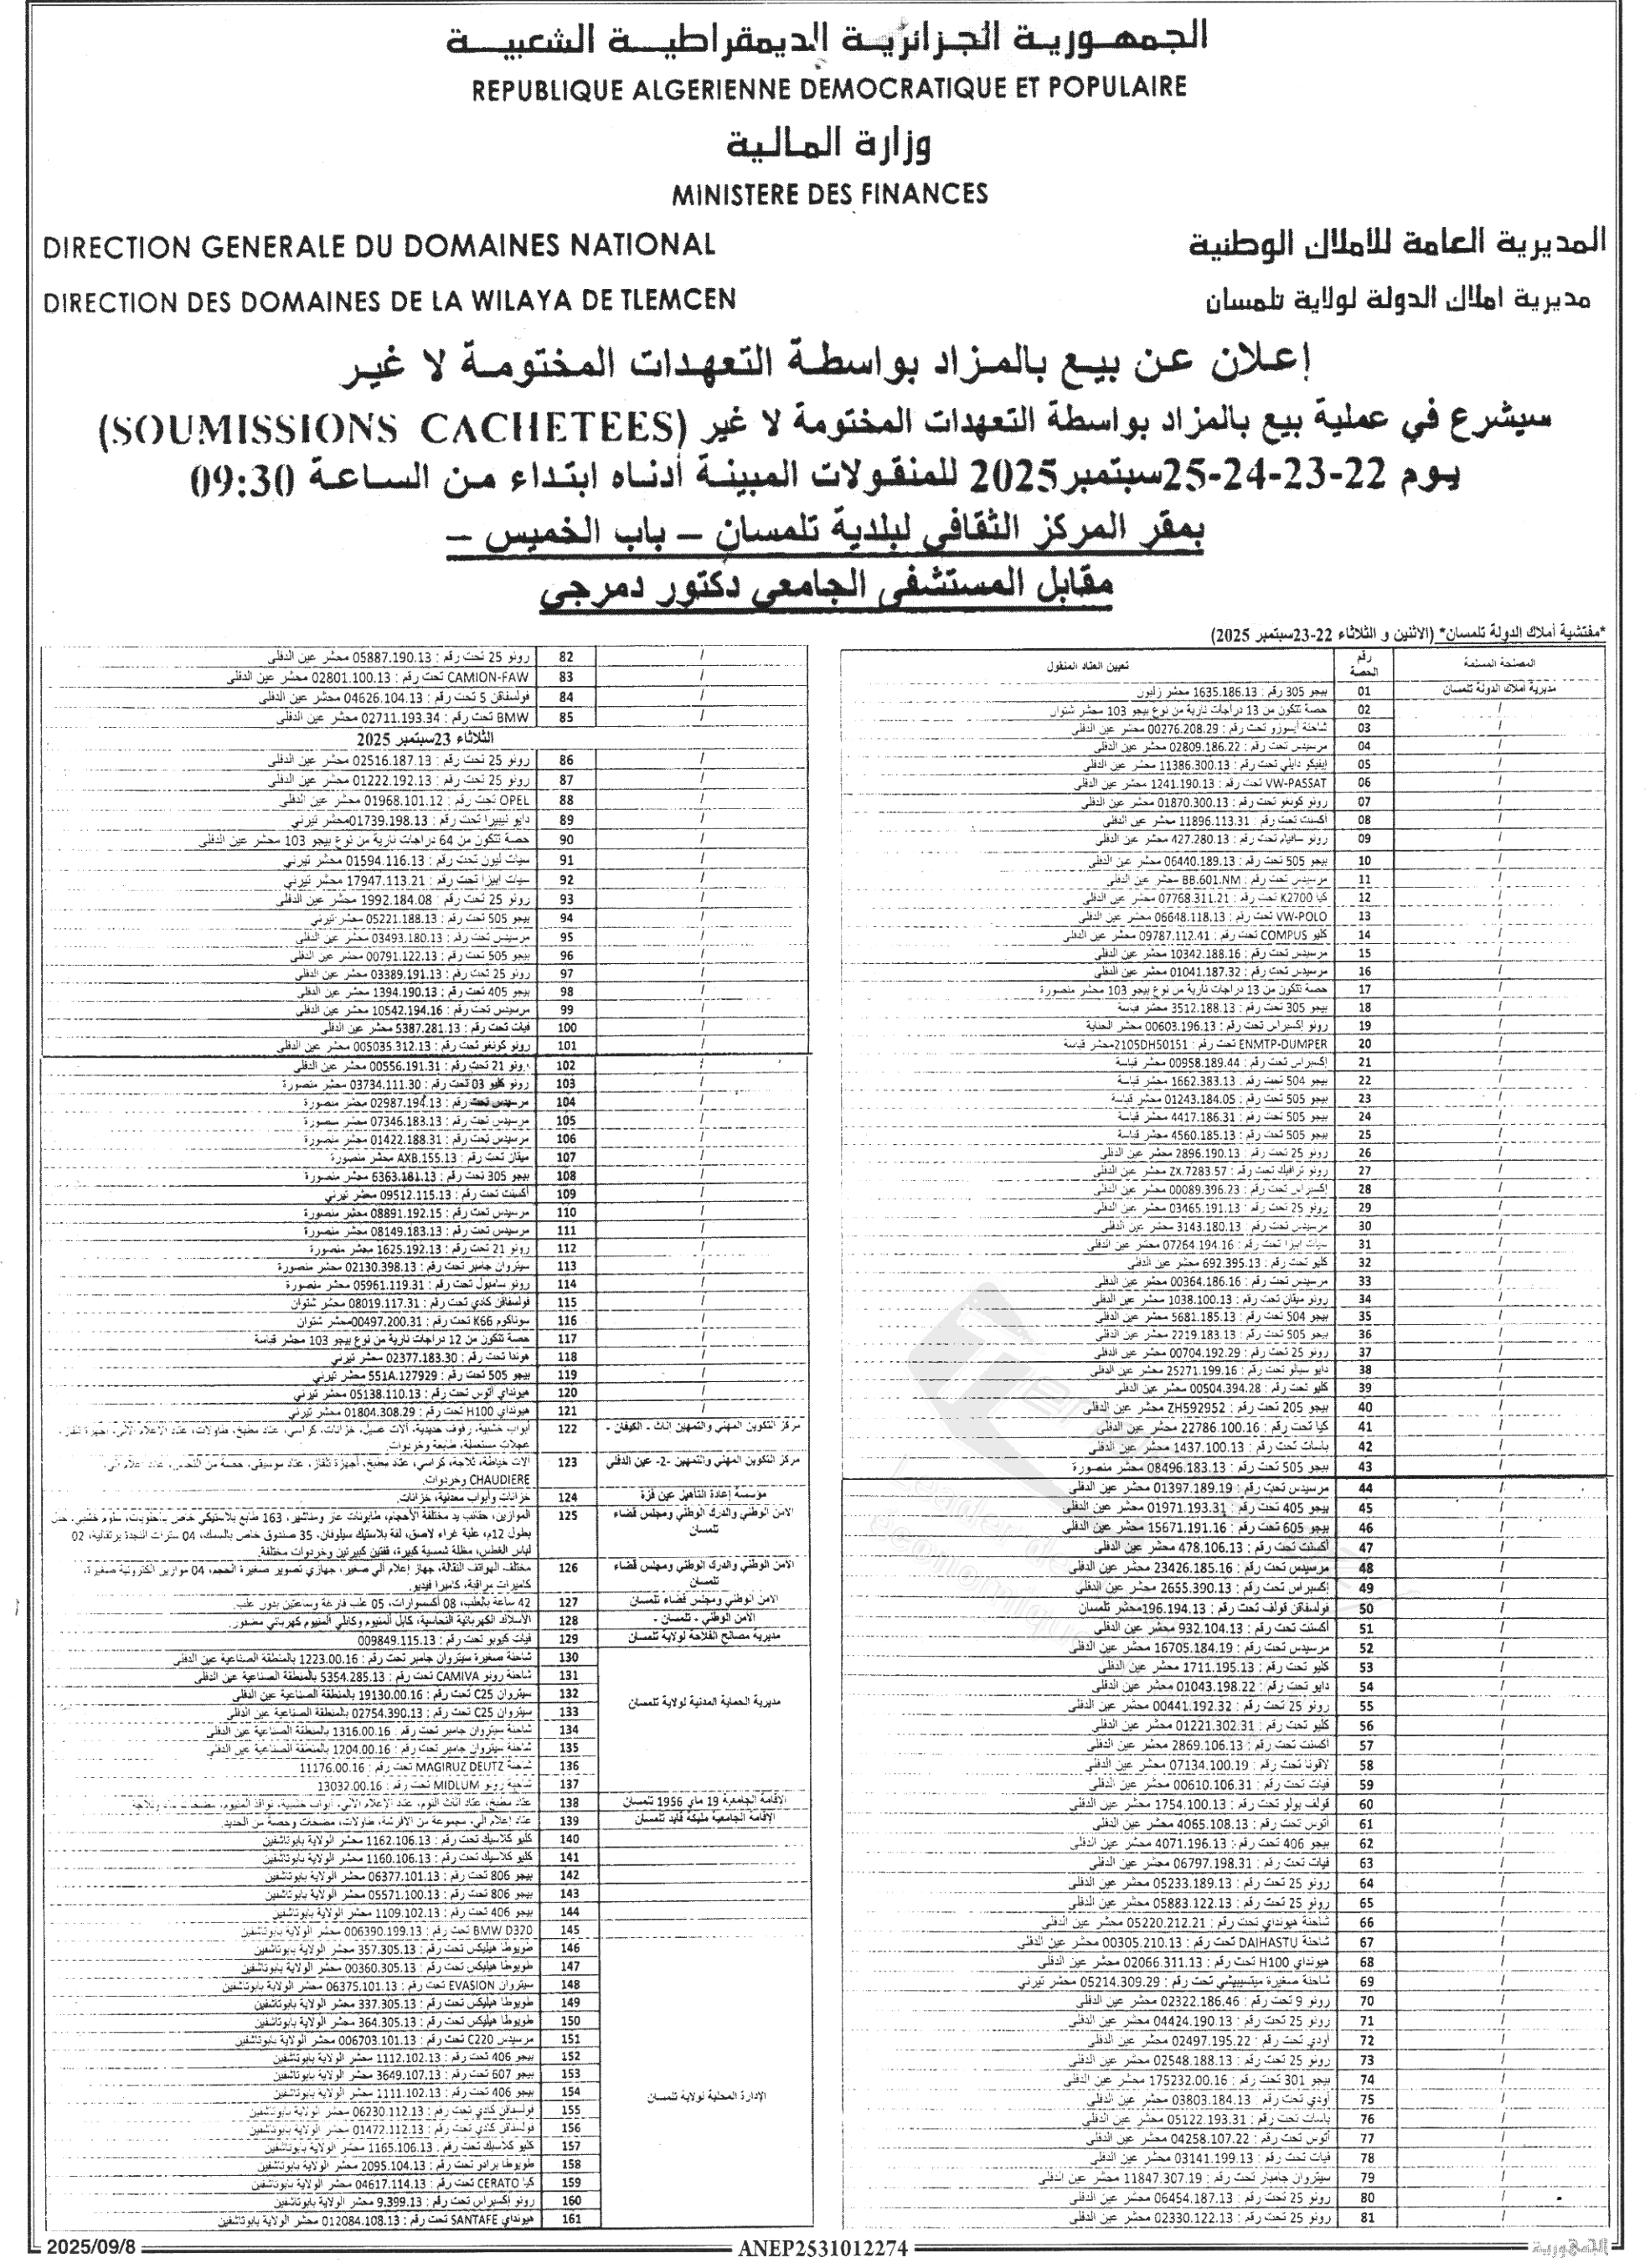 الجمهورية الجزائرية الديمقراطية الشعبية
REPUBLIQUE ALGERIENNE DEMOCRATIQUE ET POPULAIRE
وزارة المالية
MINISTERE DES FINANCES
المديرية العامة للأملاك الوطنية
DIRECTION GENERALE DU DOMAINES NATIONAL
مديرية املاك الدولة لولاية تلمسان
DIRECTION DES DOMAINES DE LA WILAYA DE TLEMCEN
إعلان عن بيع بالمزاد بواسطة التعهدات المختومة لا غير
سيشرع في عملية بيع بالمزاد بواسطة التعهدات المختومة لا غير (SOUMISSIONS CACHETEES)
يوم 22-23-24-25سبتمبر2025 للمنقولات المبينة أدناه ابتداء من الساعة 09:30
بمقر المركز الثقافي لبلدية تلمسان – باب الخميس –
مقابل المستشفى الجامعي دكتور دمرجي
*مفتشية أملاك الدولة تلمسان* (الاثنين و الثلاثاء 22-23سبتمبر 2025)
المصلحة المسلمة رقم الحصة تعيين العتاد المنقول
مديرية أملاك الدولة تلمسان 01 بيجو 305 رقم : 1635.186.13 محشر زليون
/ 02 حصة تتكون من 13 دراجات نارية من نوع بيجو 103 محشر شتوان
/ 03 شاحنة ايسوزو تحت رقم : 00276.208.29 محشر عين الدفلى
/ 04 مرسيدس تحت رقم : 02809.186.22 محشر عين الدفلى
/ 05 إيفيكو دايلي تحت رقم : 11386.300.13 محشر عين الدفلى
/ 06 VW-PASSAT تحت رقم : 1241.190.13 محشر عين الدفلى
/ 07 رونو كونغو تحت رقم : 01870.300.13 محشر عين الدفلى
/ 08 أكسنت تحت رقم : 11896.113.31 محشر عين الدفلى
/ 09 رونو سافيام تحت رقم : 427.280.13 محشر عين الدفلى
/ 10 بيجو 505 تحت رقم : 06440.189.13 محشر عين الدفلى
/ 11 مرسيدس تحت رقم : BB.601.NM محشر عين الدفلى
/ 12 كيا K2700 تحت رقم : 07768.311.21 محشر عين الدفلى
/ 13 VW-POLO تحت رقم : 06648.118.13 محشر عين الدفلى
/ 14 كليو COMPUS تحت رقم : 09787.112.41 محشر عين الدفلى
/ 15 مرسيدس تحت رقم : 10342.188.16 محشر عين الدفلى
/ 16 مرسيدس تحت رقم : 01041.187.32 محشر عين الدفلى
/ 17 حصة تتكون من 13 دراجات نارية من نوع بيجو 103 محشر منصورة
/ 18 بيجو 305 تحت رقم : 3512.188.13 محشر قباسة
/ 19 رونو إكسبراس تحت رقم : 00603.196.13 محشر الحناية
/ 20 ENMTP-DUMPER تحت رقم : 2105DH50151محشر قباسة
/ 21 إكسبراس تحت رقم : 00958.189.44 محشر قباسة
/ 22 بيجو 504 تحت رقم : 1662.383.13 محشر قباسة
/ 23 بيجو 505 تحت رقم : 01243.184.05 محشر قباسة
/ 24 بيجو 505 تحت رقم : 4417.186.31 محشر قباسة
/ 25 بيجو 505 تحت رقم : 4560.185.13 محشر قباسة
/ 26 رونو 25 تحت رقم : 2896.190.13 محشر عين الدفلى
/ 27 رونو ترافيك تحت رقم : ZX.7283.57 محشر عين الدفلى
/ 28 إكسبراس تحت رقم : 00089.396.23 محشر عين الدفلى
/ 29 رونو 25 تحت رقم : 03465.191.13 محشر عين الدفلى
/ 30 مرسيدس تحت رقم : 3143.180.13 محشر عين الدفلى
/ 31 سيات ابيزا تحت رقم : 07264.194.16 محشر عين الدفلى
/ 32 كليو تحت رقم : 692.395.13 محشر عين الدفلى
/ 33 مرسيدس تحت رقم : 00364.186.16 محشر عين الدفلى
/ 34 رونو ميقان تحت رقم : 1038.100.13 محشر عين الدفلى
/ 35 بيجو 504 تحت رقم : 5681.185.13 محشر عين الدفلى
/ 36 بيجو 505 تحت رقم : 2219.183.13 محشر عين الدفلى
/ 37 رونو 25 تحت رقم : 00704.192.29 محشر عين الدفلى
/ 38 دايو سيالو تحت رقم : 25271.199.16 محشر عين الدفلى
/ 39 كليو تحت رقم : 00504.394.28 محشر عين الدفلى
/ 40 بيجو 205 تحت رقم : ZH592952 محشر عين الدفلى
/ 41 كيا تحت رقم : 22786.100.16 محشر عين الدفلى
/ 42 باسات تحت رقم : 1437.100.13 محشر عين الدفلى
/ 43 بيجو 505 تحت رقم : 08496.183.13 محشر منصورة
/ 44 مرسيدس تحت رقم : 01397.189.19 محشر عين الدفلى
/ 45 بيجو 405 تحت رقم : 01971.193.31 محشر عين الدفلى
/ 46 بيجو 605 تحت رقم : 15671.191.16 محشر عين الدفلى
/ 47 أكسنت تحت رقم : 478.106.13 محشر عين الدفلى
/ 48 مرسيدس تحت رقم : 23426.185.16 محشر عين الدفلى
/ 49 إكسبراس تحت رقم : 2655.390.13 محشر عين الدفلى
/ 50 فولسفاقن قولف تحت رقم : 196.194.13محشر تلمسان
/ 51 أكسنت تحت رقم : 932.104.13 محشر عين الدفلى
/ 52 مرسيدس تحت رقم : 16705.184.19 محشر عين الدفلى
/ 53 كليو تحت رقم : 1711.195.13 محشر عين الدفلى
/ 54 دايو تحت رقم : 01043.198.22 محشر عين الدفلى
/ 55 رونو 25 تحت رقم : 00441.192.32 محشر عين الدفلى
/ 56 كليو تحت رقم : 01221.302.31 محشر عين الدفلى
/ 57 أكسنت تحت رقم : 2869.106.13 محشر عين الدفلى
/ 58 لاقونا تحت رقم : 07134.100.19 محشر عين الدفلى
/ 59 فيات تحت رقم : 00610.106.31 محشر عين الدفلى
/ 60 قولف بولو تحت رقم : 1754.100.13 محشر عين الدفلى
/ 61 أتوس تحت رقم : 4065.108.13 محشر عين الدفلى
/ 62 بيجو 406 تحت رقم : 4071.196.13 محشر عين الدفلى
/ 63 فيات تحت رقم : 06797.198.31 محشر عين الدفلى
/ 64 رونو 25 تحت رقم : 05233.189.13 محشر عين الدفلى
/ 65 رونو 25 تحت رقم : 05883.122.13 محشر عين الدفلى
/ 66 شاحنة هيونداي تحت رقم : 05220.212.21 محشر عين الدفلى
/ 67 شاحنة DAIHASTU تحت رقم : 00305.210.13 محشر عين الدفلى
/ 68 هيونداي H100 تحت رقم : 02066.311.13 محشر عين الدفلى
/ 69 شاحنة صغيرة ميتسيبيشي تحت رقم : 05214.309.29 محشر تيرني
/ 70 رونو 9 تحت رقم : 02322.186.46 محشر عين الدفلى
/ 71 رونو 25 تحت رقم : 04424.190.13 محشر عين الدفلى
/ 72 أودي تحت رقم : 02497.195.22 محشر عين الدفلى
/ 73 رونو 25 تحت رقم : 02548.188.13 محشر عين الدفلى
/ 74 بيجو 301 تحت رقم : 175232.00.16 محشر عين الدفلى
/ 75 أودي تحت رقم : 03803.184.13 محشر عين الدفلى
/ 76 باسات تحت رقم : 05122.193.31 محشر عين الدفلى
/ 77 أتوس تحت رقم : 04258.107.22 محشر عين الدفلى
/ 78 فيات تحت رقم : 03141.199.13 محشر عين الدفلى
/ 79 سيتروان جامبار تحت رقم : 11847.307.19 محشر عين الدفلى
/ 80 رونو 25 تحت رقم : 06454.187.13 محشر عين الدفلى
/ 81 رونو 25 تحت رقم : 02330.122.13 محشر عين الدفلى
/ 82 رونو 25 تحت رقم : 05887.190.13 محشر عين الدفلى
/ 83 CAMION-FAW تحت رقم : 02801.100.13 محشر عين الدفلى
/ 84 فولسفاقن 5 تحت رقم : 04626.104.13 محشر عين الدفلى
/ 85 BMW تحت رقم : 02711.193.34 محشر عين الدفلى
الثلاثاء 23سبتمبر 2025
/ 86 رونو 25 تحت رقم : 02516.187.13 محشر عين الدفلى
/ 87 رونو 25 تحت رقم : 01222.192.13 محشر عين الدفلى
/ 88 OPEL تحت رقم : 01968.101.12 محشر عين الدفلى
/ 89 دايو نيبيرا تحت رقم : 01739.198.13محشر تيرني
/ 90 حصة تتكون من 64 دراجات نارية من نوع بيجو 103 محشر عين الدفلى
/ 91 سيات ليون تحت رقم : 01594.116.13 محشر تيرني
/ 92 سيات ابيزا تحت رقم : 17947.113.21 محشر تيرني
/ 93 رونو 25 تحت رقم : 1992.184.08 محشر عين الدفلى
/ 94 بيجو 505 تحت رقم : 05221.188.13 محشر تيرني
/ 95 مرسيدس تحت رقم : 03493.180.13 محشر عين الدفلى
/ 96 بيجو 505 تحت رقم : 00791.122.13 محشر عين الدفلى
/ 97 رونو 25 تحت رقم : 03389.191.13 محشر عين الدفلى
/ 98 بيجو 405 تحت رقم : 1394.190.13 محشر عين الدفلى
/ 99 مرسيدس تحت رقم : 10542.194.16 محشر عين الدفلى
/ 100 فيات تحت رقم : 5387.281.13 محشر عين الدفلى
/ 101 رونو كونغو تحت رقم : 005035.312.13 محشر عين الدفلى
/ 102 رونو 21 تحت رقم : 00556.191.31 محشر عين الدفلى
/ 103 رونو كليو 03 تحت رقم : 03734.111.30 محشر منصورة
/ 104 مرسيدس تحت رقم : 02987.194.13 محشر منصورة
/ 105 مرسيدس تحت رقم : 07346.183.13 محشر منصورة
/ 106 مرسيدس تحت رقم : 01422.188.31 محشر منصورة
/ 107 ميقان تحت رقم : AXB.155.13 محشر منصورة
/ 108 بيجو 305 تحت رقم : 6363.181.13 محشر منصورة
/ 109 أكسنت تحت رقم : 09512.115.13 محشر تيرني
/ 110 مرسيدس تحت رقم : 08891.192.15 محشر منصورة
/ 111 مرسيدس تحت رقم : 08149.183.13 محشر منصورة
/ 112 رونو 21 تحت رقم : 1625.192.13 محشر منصورة
/ 113 سيتروان جامبر تحت رقم : 02130.398.13 محشر منصورة
/ 114 رونو سامبول تحت رقم : 05961.119.31 محشر منصورة
/ 115 فولسفاقن كادي تحت رقم : 08019.117.31 محشر شتوان
/ 116 سوناكوم K66 تحت رقم : 00497.200.31محشر شتوان
/ 117 حصة تتكون من 12 دراجات نارية من نوع بيجو 103 محشر قباسة
/ 118 هوندا تحت رقم : 02377.183.30 محشر تيرني
/ 119 بيجو 505 تحت رقم : 551A.127929 محشر تيرني
/ 120 هيونداي أتوس تحت رقم : 05138.110.13 محشر تيرني
/ 121 هيونداي H100 تحت رقم : 01804.308.29 محشر تيرني
مركز التكوين المهني والتمهين اناث - الكيفان - 122 أبواب خشبية، رفوف حديدية، آلات غسيل، خزانات، كراسي، عتاد مطبخ، طاولات، عتاد الاعلام الآلي، أجهزة تلفاز،
عجلات مستعملة، طابعة وخردوات.
مركز التكوين المهني والتمهين -2- عين الدفلى 123 آلات خياطة، ثلاجة، كراسي، عتاد مطبخ، أجهزة تلفاز، عتاد موسيقى، حصة من النحاس، عتاد اعلام آلي،
CHAUDIERE وخردوات.
مؤسسة إعادة التأهيل عين فزة 124 خزانات وأبواب معدنية، خزانات.
الامن الوطني والدرك الوطني ومجلس قضاء تلمسان 125 الموازين، حقائب يد مختلفة الأحجام، طابونات غاز ومناشير، 163 طابع بلاستيكي خاص بالحلويات، سلوم خشبي،
بطول 12م، علبة غراء لاصق، لفة بلاستيك سيلوفان، 35 صندوق خاص بالسمك، 04 سترات النجدة برتقالية، 02
لباس الغطس، مظلة شمسية كبيرة، قفتين كبيرتين وخردوات مختلفة.
الامن الوطني والدرك الوطني ومجلس قضاء تلمسان 126 مختلف الهواتف النقالة، جهاز إعلام آلي صغير، جهازي تصوير صغيرة الحجم، 04 موازين الكترونية صغيرة،
كاميرات مراقبة، كاميرا فيديو.
الامن الوطني ومجلس قضاء تلمسان 127 42 ساعة بالعلب، 08 أكسسوارات، 05 علب فارغة وساعتين بدون علب.
الامن الوطني - تلمسان - 128 الأسلاك الكهربائية النحاسية، كابل المنيوم وكابلي المنيوم كهربائي مضفور.
مديرية مصالح الفلاحة لولاية تلمسان 129 فيات كيوبو تحت رقم : 009849.115.13
مديرية الحماية المدنية لولاية تلمسان
130 شاحنة صغيرة سيتروان جامبر تحت رقم : 1223.00.16 بالمنطقة الصناعية عين الدفلى
131 شاحنة رونو CAMIVA تحت رقم : 5354.285.13 بالمنطقة الصناعية عين الدفلى
132 سيتروان C25 تحت رقم : 19130.00.16 بالمنطقة الصناعية عين الدفلى
133 سيتروان C25 تحت رقم : 02754.390.13 بالمنطقة الصناعية عين الدفلى
134 شاحنة سيتروان جامبر تحت رقم : 1316.00.16 بالمنطقة الصناعية عين الدفلى
135 شاحنة سيتروان جامبر تحت رقم : 1204.00.16 بالمنطقة الصناعية عين الدفلى
136 شاحنة MAGIRUZ DEUTZ تحت رقم : 11176.00.16
137 شاحنة رونو MIDLUM تحت رقم : 13032.00.16
الإقامة الجامعية 19 ماي 1956 تلمسان 138 عتاد مطبخ، عتاد اثاث النوم، عتاد الإعلام الآلي، أبواب خشبية، نوافذ المنيوم، مضخات ماء وثلاجة
الإقامة الجامعية مليكة قايد تلمسان 139 عتاد إعلام آلي، مجموعة من الأفرشة، طاولات، مضخات وحصة من الحديد.
الإدارة المحلية لولاية تلمسان
140 كليو كلاسيك تحت رقم : 1162.106.13 محشر الولاية بابوتاشفين
141 كليو كلاسيك تحت رقم : 1160.106.13 محشر الولاية بابوتاشفين
142 بيجو 806 تحت رقم : 06377.101.13 محشر الولاية بابوتاشفين
143 بيجو 806 تحت رقم : 05571.100.13 محشر الولاية بابوتاشفين
144 بيجو 406 تحت رقم : 1109.102.13 محشر الولاية بابوتاشفين
145 BMW D370 تحت رقم : 006390.199.13 محشر الولاية بابوتاشفين
146 طويوطا هيليكس تحت رقم : 357.305.13 محشر الولاية بابوتاشفين
147 طويوطا هيليكس تحت رقم : 00360.305.13 محشر الولاية بابوتاشفين
148 سيتروان EVASION تحت رقم : 06375.101.13 محشر الولاية بابوتاشفين
149 طويوطا هيليكس تحت رقم : 337.305.13 محشر الولاية بابوتاشفين
150 طويوطا هيليكس تحت رقم : 364.305.13 محشر الولاية بابوتاشفين
151 مرسيدس C220 تحت رقم : 006703.101.13 محشر الولاية بابوتاشفين
152 بيجو 406 تحت رقم : 1112.102.13 محشر الولاية بابوتاشفين
153 بيجو 607 تحت رقم : 3649.107.13 محشر الولاية بابوتاشفين
154 بيجو 406 تحت رقم : 1111.102.13 محشر الولاية بابوتاشفين
155 فولسفاقن كادي تحت رقم : 06230.112.13 محشر الولاية بابوتاشفين
156 فولسفاقن كادي تحت رقم : 01472.112.13 محشر الولاية بابوتاشفين
157 كليو كلاسيك تحت رقم : 1165.106.13 محشر الولاية بابوتاشفين
158 طويوطا برادو تحت رقم : 2095.104.13 محشر الولاية بابوتاشفين
159 كيا CERATO تحت رقم : 04617.114.13 محشر الولاية بابوتاشفين
160 رونو إكسبراس تحت رقم : 9.399.13 محشر الولاية بابوتاشفين
161 هيونداي SANTAFE تحت رقم : 012084.108.13 محشر الولاية بابوتاشفين
الجمهورية
ANEP2531012274
2025/09/8